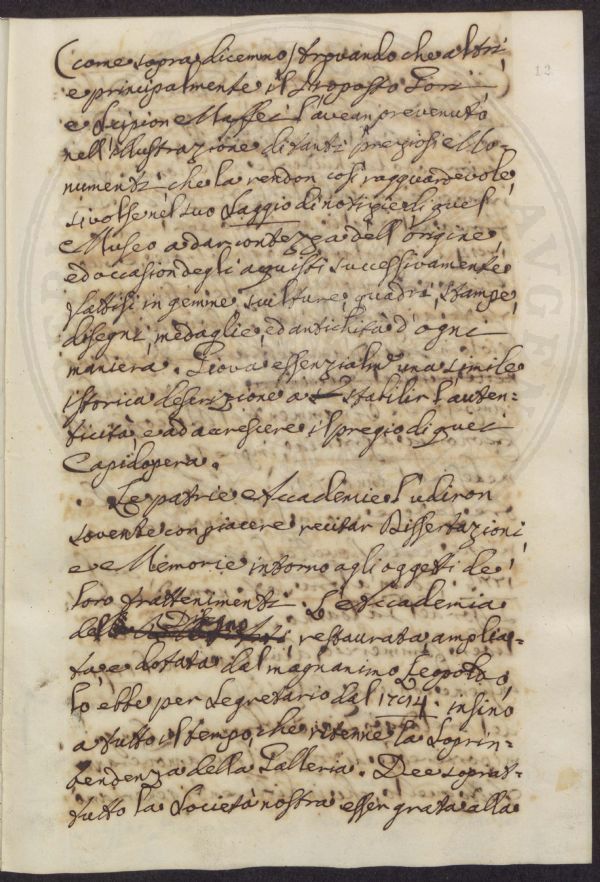 (come sopra dicemmo) trovando che altri,
12
e principalmente il Proposto Gori
e Scipion Maffei l'avean prevenuto
nell'illustrazione di tanti pregiosi Mo-
numenti che la rendon così ragguardevole,
si volse nel suo Saggio di notizie di quel
Museo a dar contezza dell'origine,
ed occasion degli aquisti successivamente
fattisi in gemme sculture, quadri, stampe,
disegni, medaglie, ed antichità d'ogni
maniera. Giova essenzialm.e una simile
istorica descrizione a stabilir l'auten=
ticità, e ad accrescere il pregio di quei
Capidopera.
Le patrie Accademie l'udiron
sovente con piacere recitar Dissertazioni
e Memorie intorno agli oggetti de'
loro trattenimenti. L'Accademia
del Disegno restaurata amplia=
ta e dotata dal magnanimo Leopoldo
lo ebbe per Segretario dal insino
a tutto il tempo, che ritenne la Soprin=
tendenza della Galleria. Dee soprat=
tutto la Società nostra esser grata alla